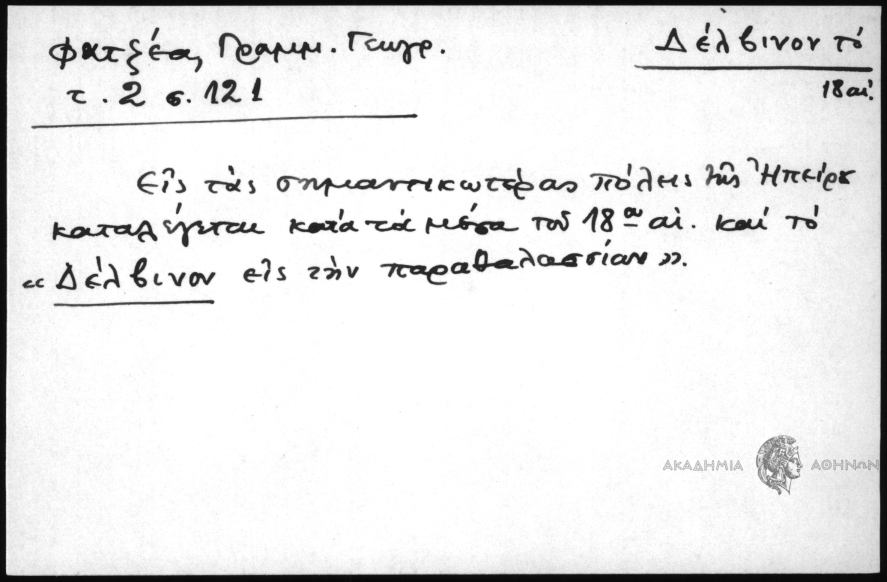 Φατζέα, Γραμμ. Γεωγρ.
τ. 2 σ. 121
Δέλβινον τό
18 αἰ.
Εἰς τὰς σημαντικωτέρας πόλεις τῆς Ἠπείρου
καταλέγεται κατὰ τὰ μέσα τοῦ 18ου αἰ. καί τό
«Δέλβινον εἰς τὴν παραθαλασσίαν».
ΑΚΑΔΗΜΙΑ ΑΘΗΝΩΝ